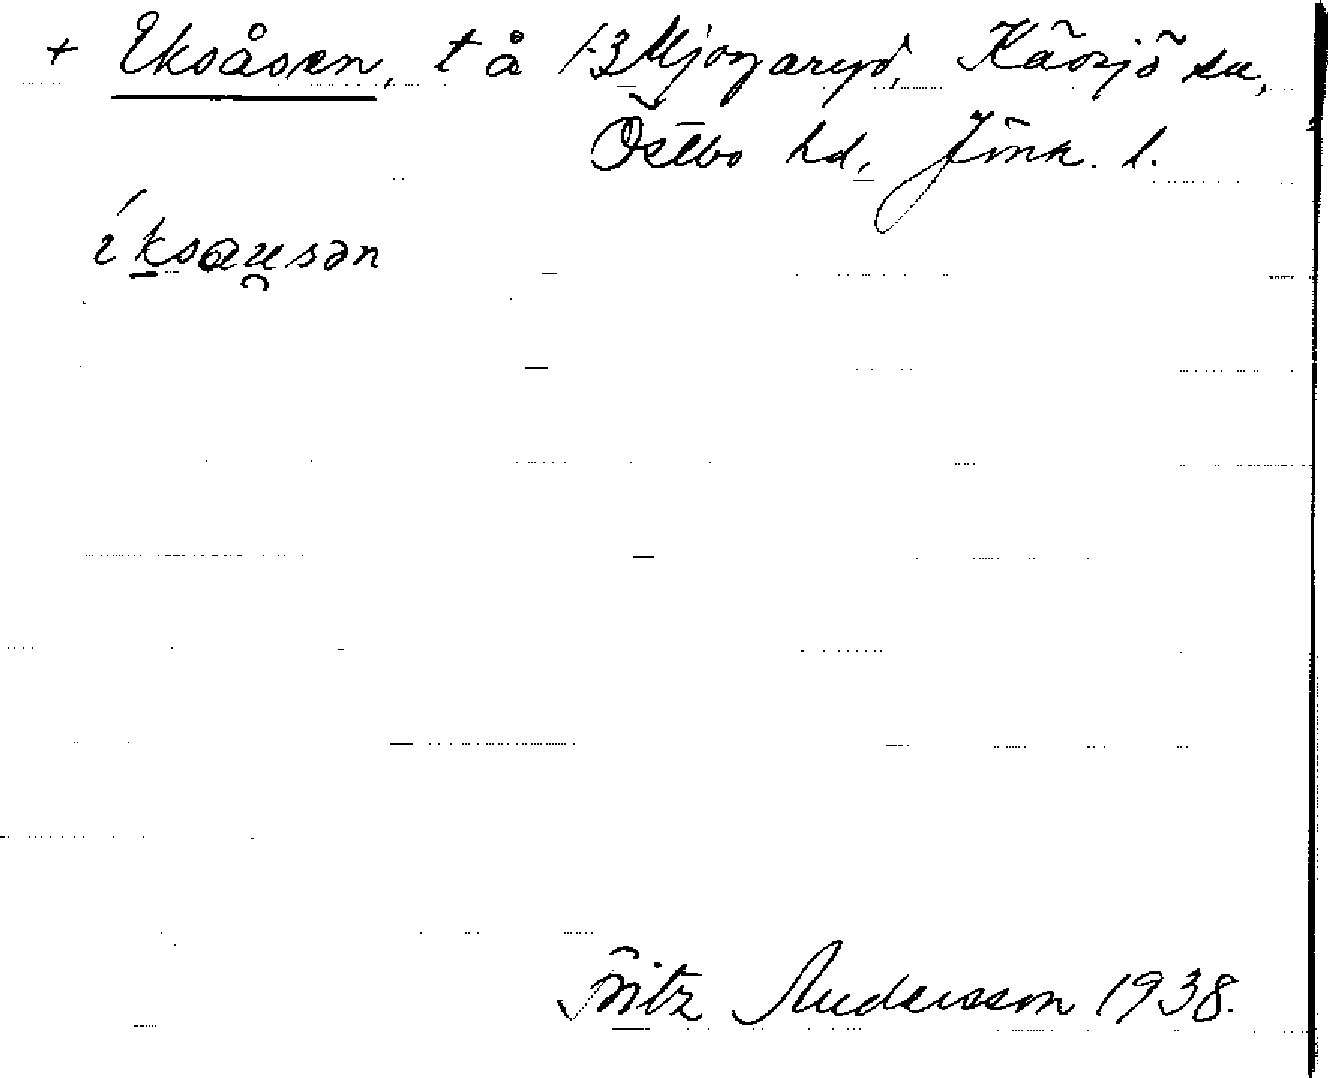 + Eksåsen, t å 1-3 Mjogaryd, Kävsjö sn,
Östbo hd, Jönk. l.
íksau̯sən
Fritz Andersson 1938.